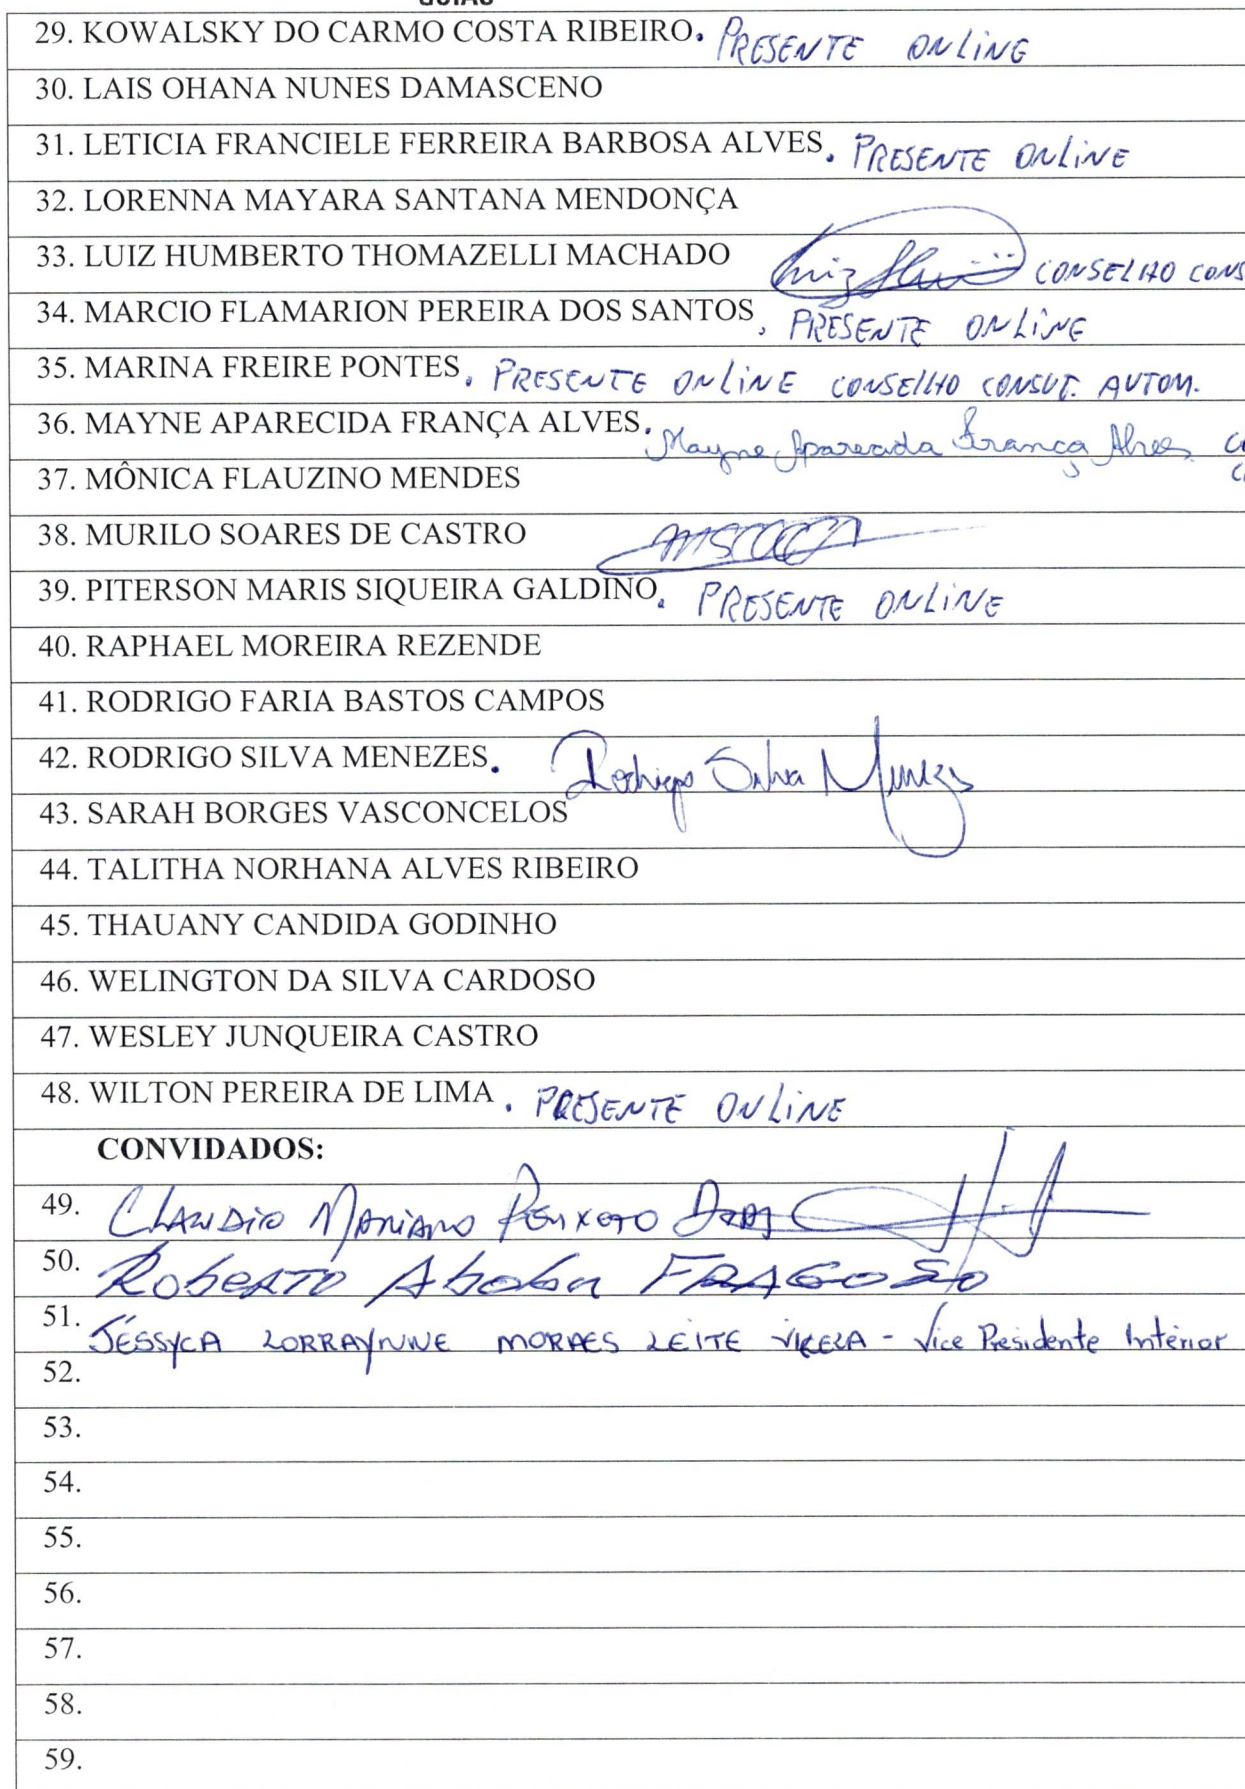 GOIÁS
29. KOWALSKY DO CARMO COSTA RIBEIRO. PRESENTE ONLINE
30. LAIS OHANA NUNES DAMASCENO
31. LETICIA FRANCIELE FERREIRA BARBOSA ALVES. PRESENTE ONLINE
32. LORENNA MAYARA SANTANA MENDONÇA
33. LUIZ HUMBERTO THOMAZELLI MACHADO Luiz CONSELHO CONS
34. MARCIO FLAMARION PEREIRA DOS SANTOS, PRESENTE ONLINE
35. MARINA FREIRE PONTES. PRESENTE ONLINE CONSELHO CONSUT. AUTOM.
36. MAYNE APARECIDA FRANÇA ALVES. Mayne Aparecida França Alves
37. MÔNICA FLAUZINO MENDES
38. MURILO SOARES DE CASTRO
39. PITERSON MARIS SIQUEIRA GALDINO. PRESENTE ONLINE
40. RAPHAEL MOREIRA REZENDE
41. RODRIGO FARIA BASTOS CAMPOS
42. RODRIGO SILVA MENEZES. Rodrigo Silva Menezes
43. SARAH BORGES VASCONCELOS
44. TALITHA NORHANA ALVES RIBEIRO
45. THAUANY CANDIDA GODINHO
46. WELINGTON DA SILVA CARDOSO
47. WESLEY JUNQUEIRA CASTRO
48. WILTON PEREIRA DE LIMA. PRESENTE ONLINE
CONVIDADOS:
49. CLAUDIO MARIANO PEIXOTO DIAS
50. ROBERTO FRAGOSO
51. JÉSSYCA LORRAYNNE MORAES LEITE VILELA - Vice Presidente Interior
52.
53.
54.
55.
56.
57.
58.
59.